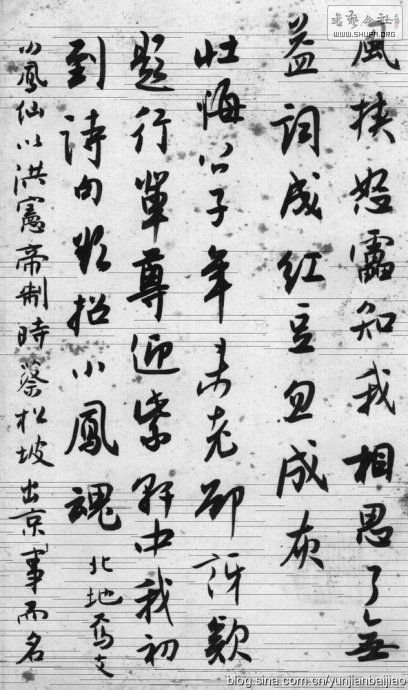 風挾怒靁知我相思了無
益詞成紅豆忽成灰
壯悔公子年未老卻訝歎
題行輩尊迎紫中我初
到詩句欲招小鳳魂
北地焉支
小鳳仙以洪憲帝制時蔡松坡出京事而名
書藝公社
WWW.SHUFA.ORG
blog.sina.com.cn/yunjianbaijiao